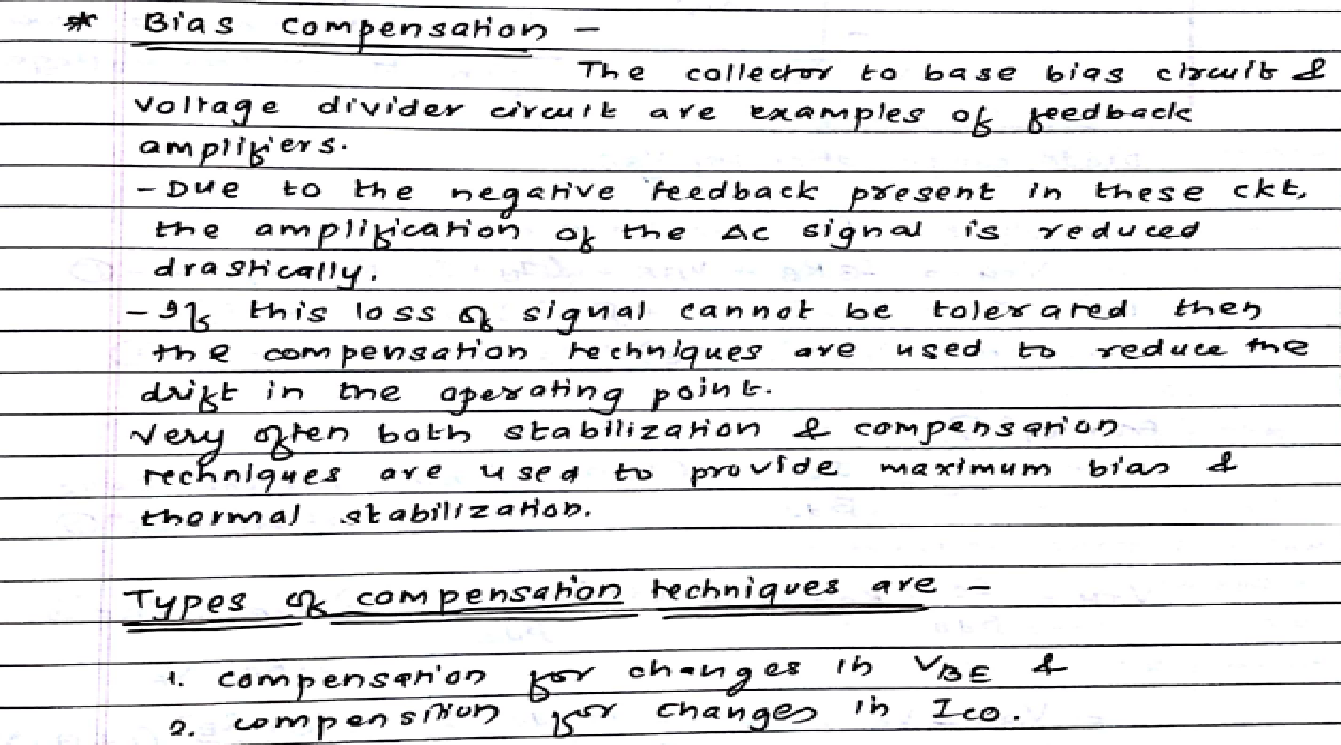 * Bias compensation -
The collector to base bias circuit &
voltage divider circuit are examples of feedback
amplifiers.
- Due to the negative feedback present in these ckt,
the amplification of the AC signal is reduced
drastically.
- If this loss of signal cannot be tolerated then
the compensation techniques are used to reduce the
drift in the operating point.
Very often both stabilization & compensation
techniques are used to provide maximum bias &
thermal stabilization.
Types of compensation techniques are -
1. compensation for changes in VBE &
2. compensition for changes in Ico.